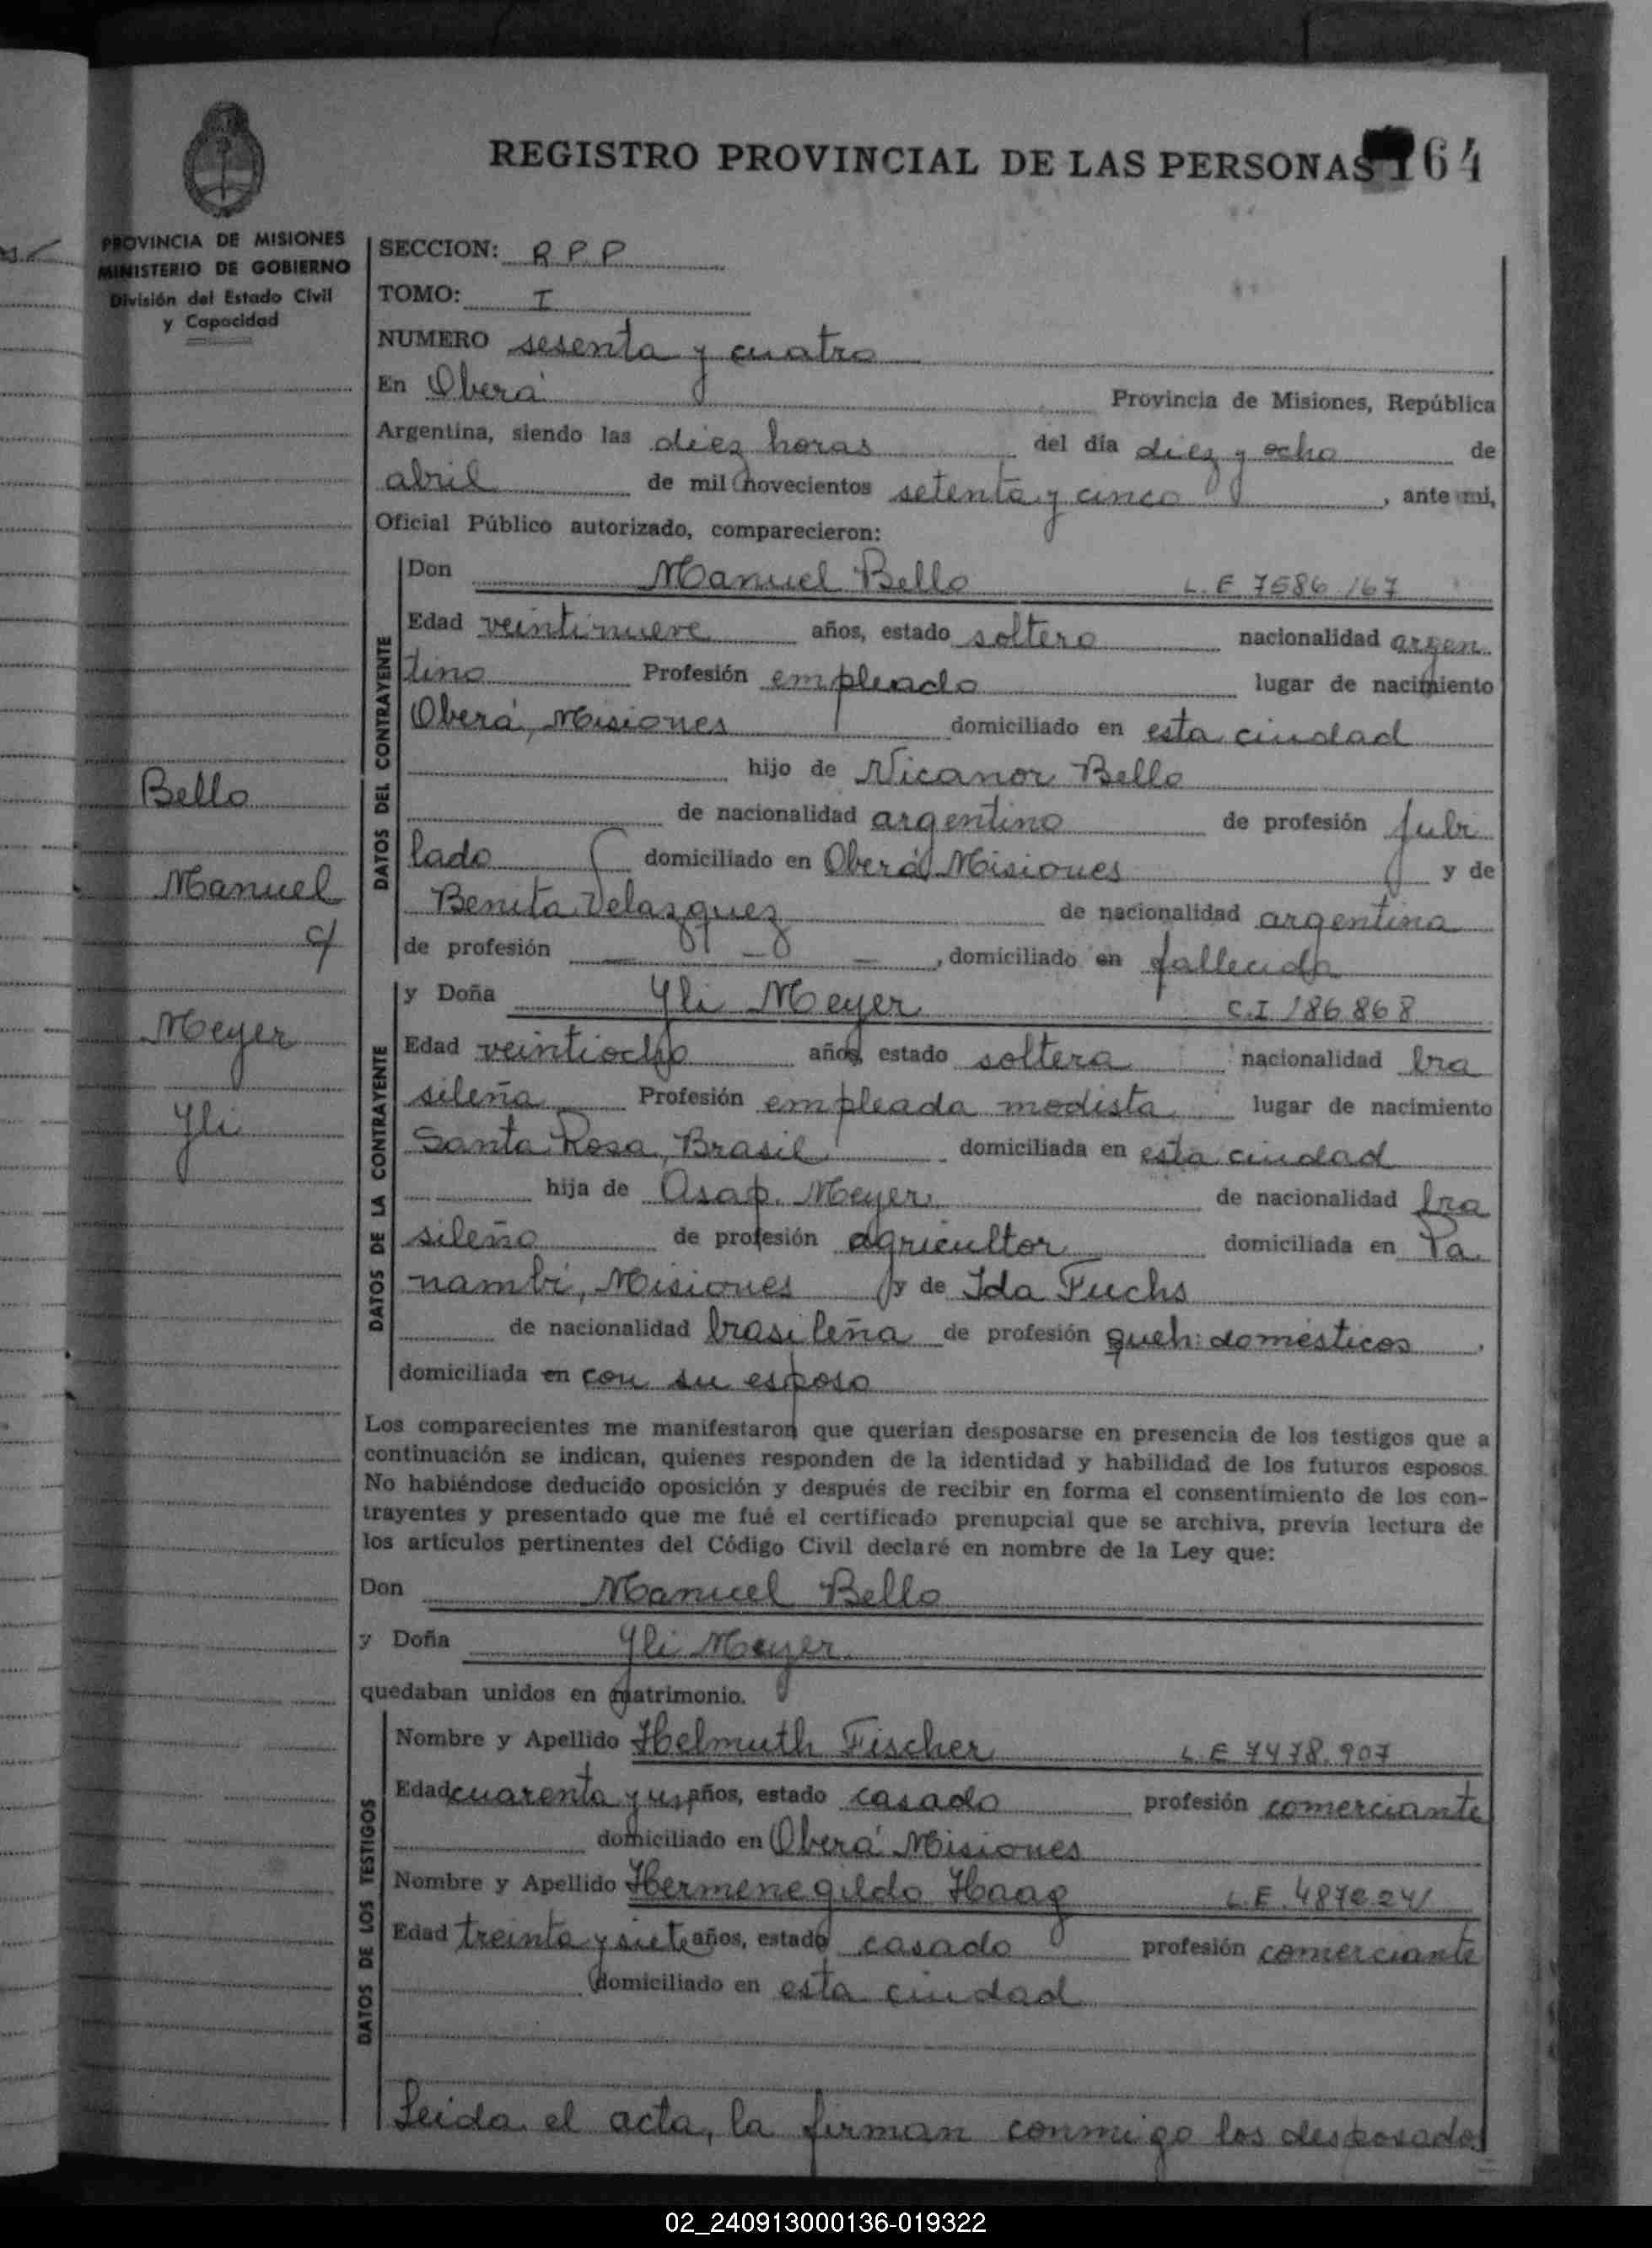 REGISTRO PROVINCIAL DE LAS PERSONAS 164
PROVINCIA DE MISIONES
MINISTERIO DE GOBIERNO
División del Estado Civil
y Capacidad
SECCION: R P P
TOMO: I
NUMERO sesenta y cuatro
En Oberá Provincia de Misiones, República
Argentina, siendo las diez horas del día diez y ocho de
abril de mil novecientos setenta y cinco, ante mi,
Oficial Público autorizado, comparecieron:
DATOS DEL CONTRAYENTE
Don Manuel Bello L.E 7586167
Edad veintinueve años, estado soltero nacionalidad argen
tino Profesión empleado lugar de nacimiento
Oberá, Misiones domiciliado en esta ciudad
hijo de Nicanor Bello
de nacionalidad argentino de profesión jubi
lado domiciliado en Oberá Misiones y de
Benita Velazquez de nacionalidad argentina
de profesión — — —, domiciliado en fallecida
Bello
Manuel
c/
Meyer
Yli
DATOS DE LA CONTRAYENTE
y Doña Yli Meyer C.I 186868
Edad veintiocho años, estado soltera nacionalidad bra
sileña Profesión empleada modista lugar de nacimiento
Santa Rosa, Brasil domiciliada en esta ciudad
hija de Asap. Meyer de nacionalidad bra
sileño de profesión agricultor domiciliada en Pa
nambí, Misiones y de Ida Fuchs
de nacionalidad brasileña de profesión queh: domésticos,
domiciliada en con su esposo
Los comparecientes me manifestaron que querían desposarse en presencia de los testigos que a
continuación se indican, quienes responden de la identidad y habilidad de los futuros esposos.
No habiéndose deducido oposición y después de recibir en forma el consentimiento de los con-
trayentes y presentado que me fué el certificado prenupcial que se archiva, previa lectura de
los artículos pertinentes del Código Civil declaré en nombre de la Ley que:
Don Manuel Bello
y Doña Yli Meyer
quedaban unidos en matrimonio.
DATOS DE LOS TESTIGOS
Nombre y Apellido Helmuth Fischer L.E 7478.907
Edad cuarenta y un años, estado casado profesión comerciante
domiciliado en Oberá Misiones
Nombre y Apellido Hermenegildo Haag L.E.
Edad treinta y siete años, estado casado profesión comerciante
domiciliado en esta ciudad
Leida el acta, la firman conmigo los desposados
02_240913000136-019322